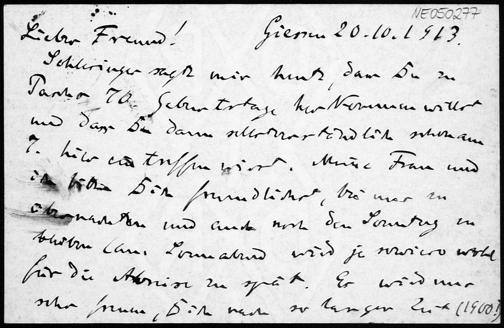 NE050277
Lieber Freund! Giessen 20.10.1913.
Schlesinger sagt mir heute, dass Du zu
Pasches 70. Geburtstage herkommen willst
und dass Du dann selbstverständlich schon am
7. hier eintreffen wirst. Meine Frau und
ich bitten Dich freundlichst, bei uns zu
übernachten und auch noch den Sonntag zu
bleiben (am Sonnabend wird ja sowieso wohl
für die Abreise zu spät. Es wird uns
sehr freuen, Dich nach so langer Zeit (1900!)